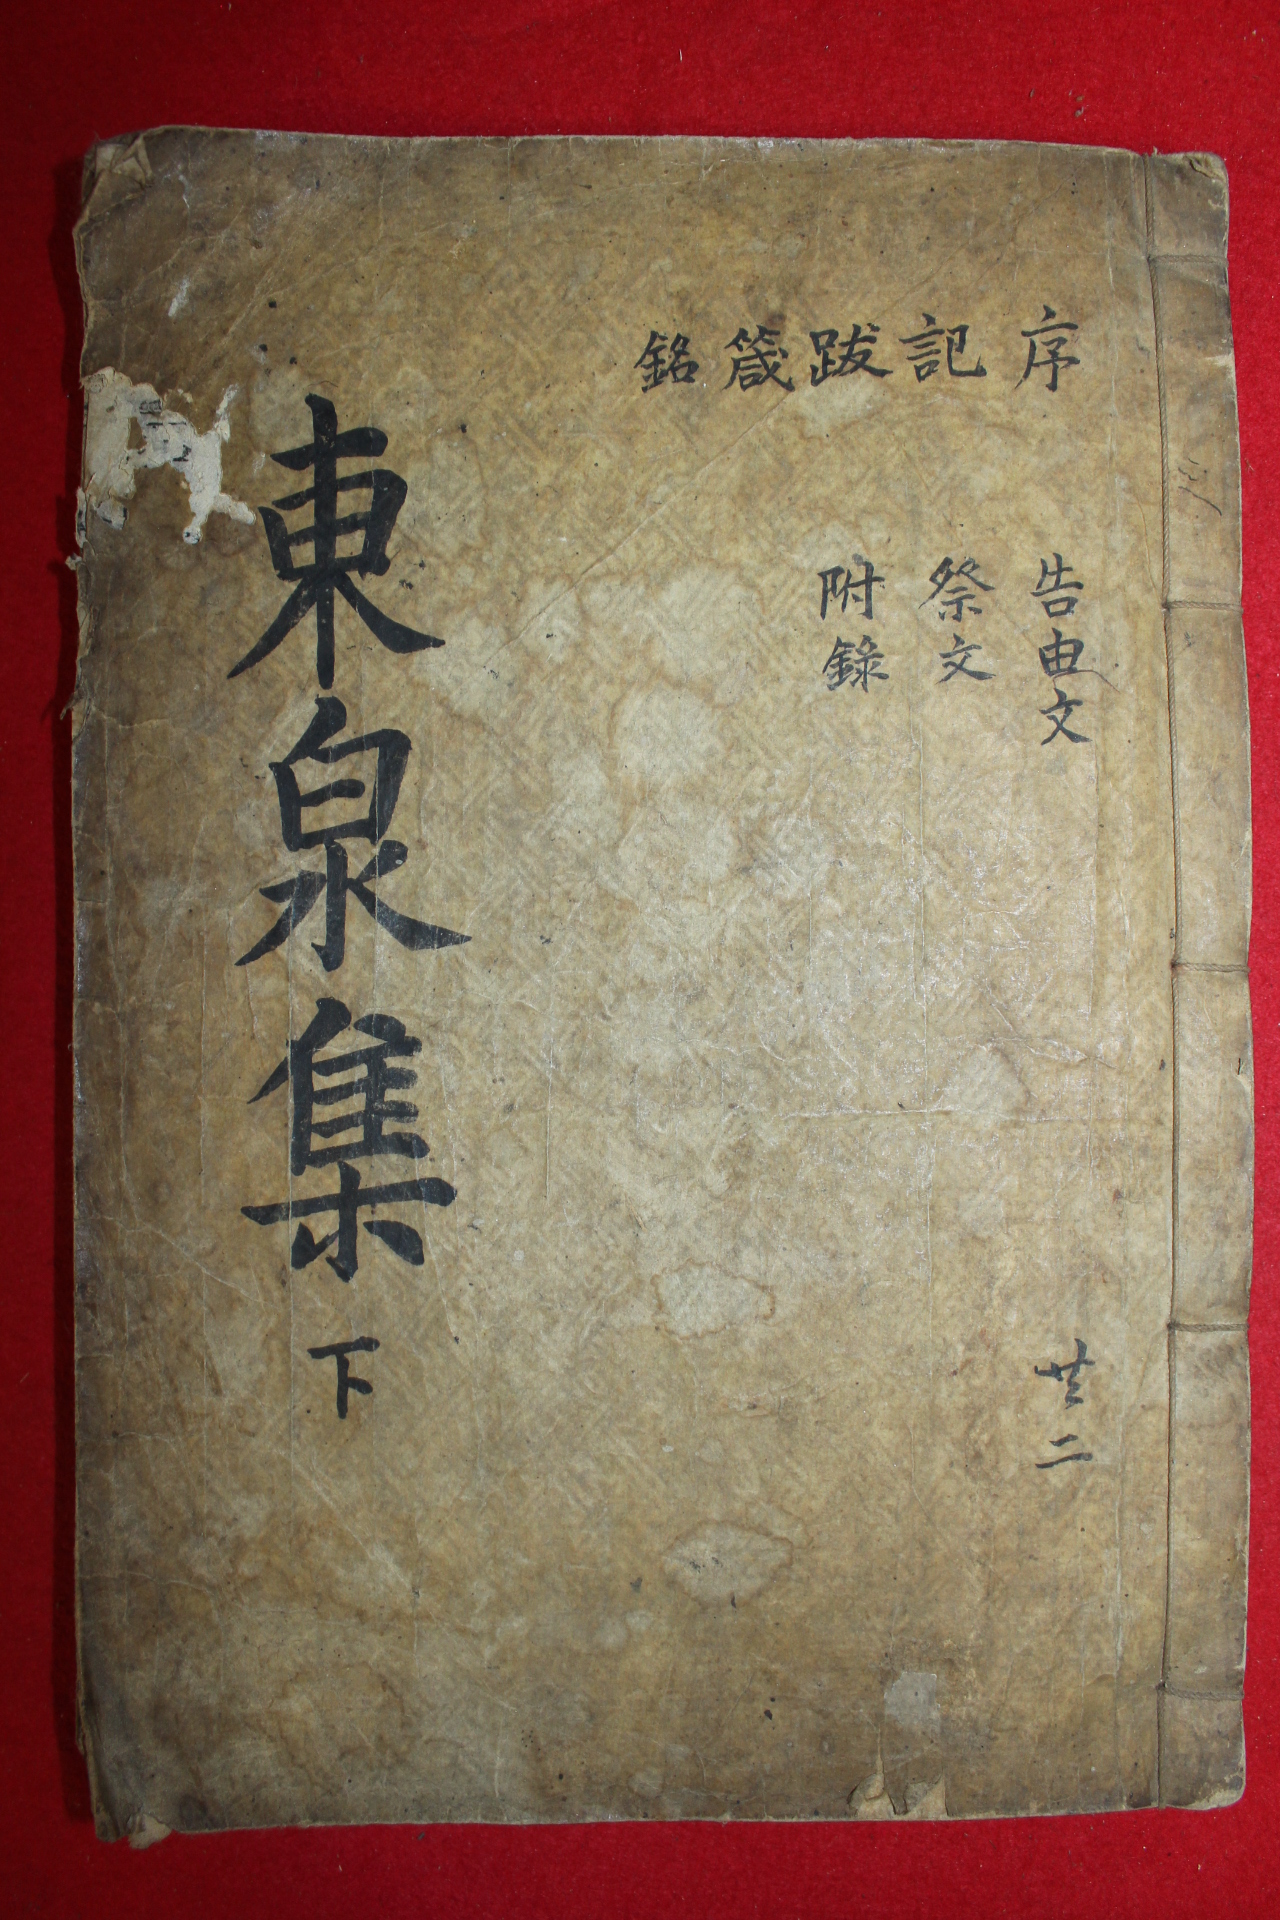 序 記 跋 箴 銘
告由文
祭文
附錄
共二
東泉集 下